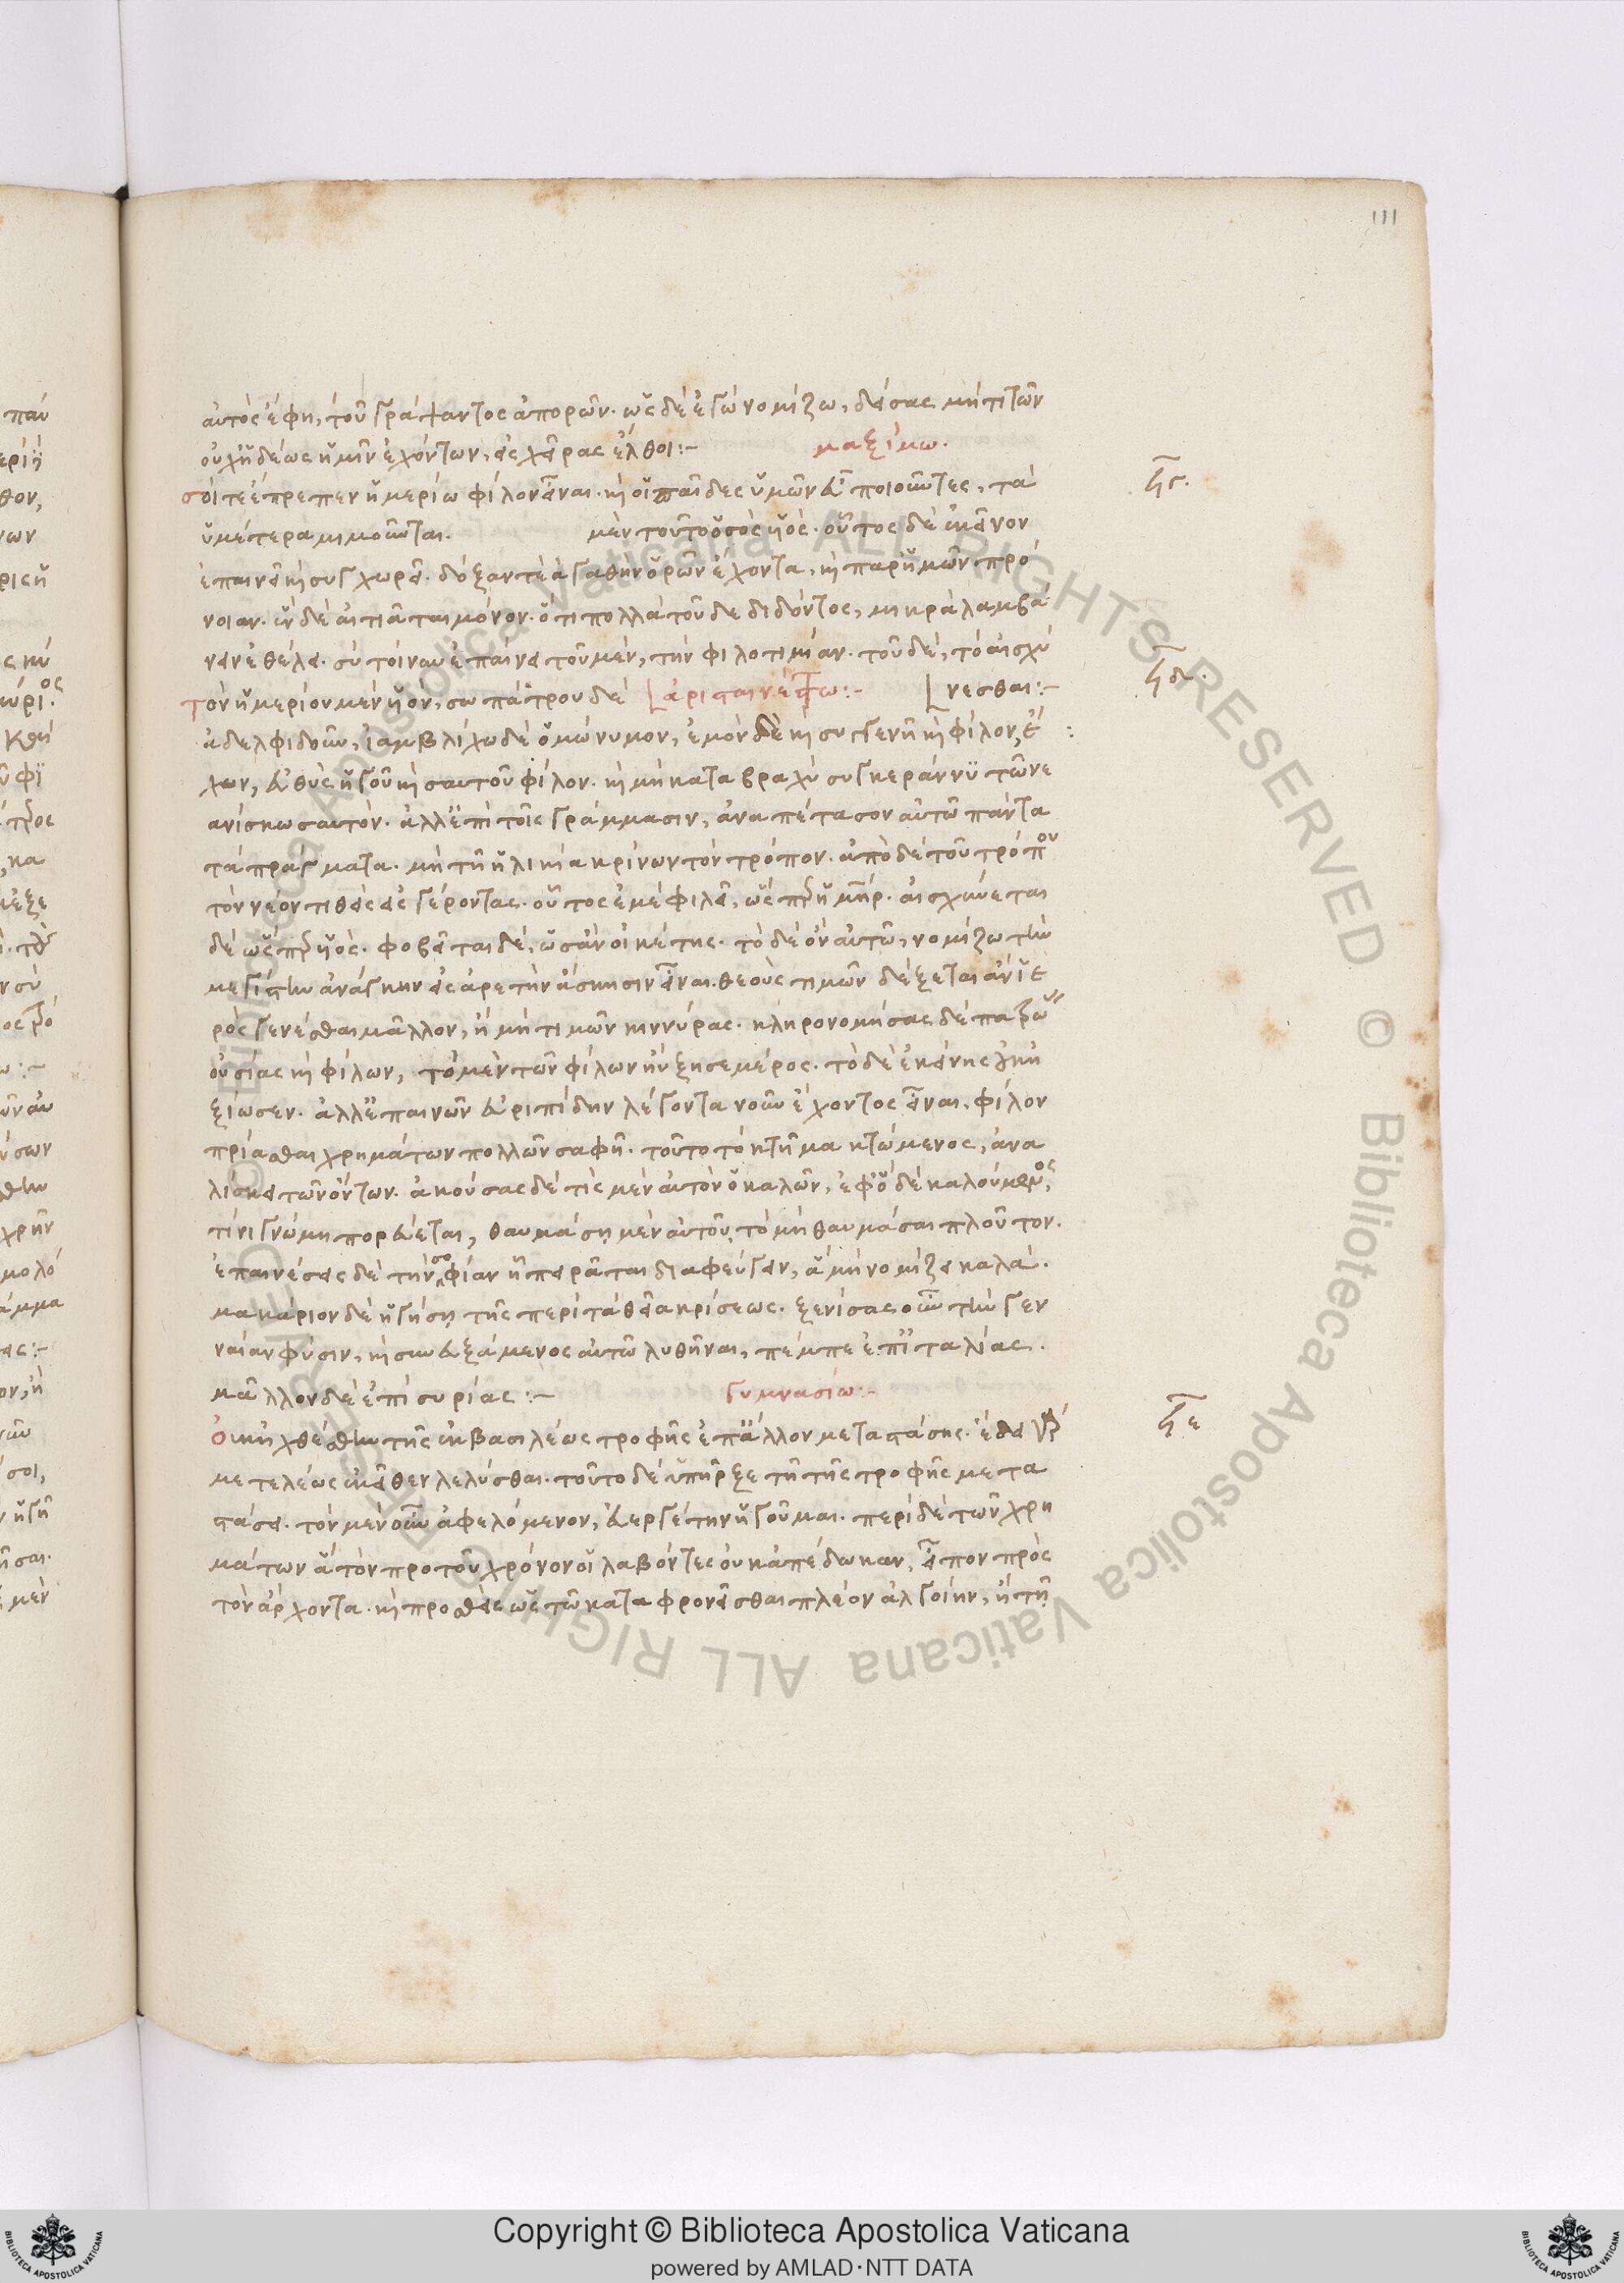 111
αὐτὸς ἔφη, τοῦ γράψαντος ἀπορῶν. ὡς δὲ ἐγὼ νομίζω, δείσας μή τι τῶν
οὐχ ἡδέως ἡμῖν ἐχόντων, εἰς χεῖρας ἔλθοι:~ μαξίμω.
σοί τε ἔπρεπεν ἡμερίω φίλον εἶναι. καὶ οἱ παῖδες ὑμῶν εὖ ποιοῦντες, τὰ
ὑμέτερα μιμοῦνται. μὲν τοῦτο ὁ σὸς υἱός. οὗτος δὲ ἐκεῖνον
ἐπαινεῖ καὶ συγχωρεῖ. δόξαν τὲ ἀγαθὴν ὁρῶν ἔχοντα, καὶ παρ' ἡμῶν πρό
νοιαν. ἓν δὲ αἰτιᾶται μόνον. ὅτι πολλὰ τοῦδε διδόντος, μικρὰ λαμβά
νειν ἐθέλει. σὺ τοίνυν ἐπαίνει τοῦ μὲν, τὴν φιλοτιμίαν. τοῦ δὲ, τὸ αἰσχύ
τὸν ἡμερίου μὲν υἱὸν, σωπάτρου δὲ ἀρισταινέτω:~ νεσθαι:~
ἀδελφιδοῦν, ἰαμβλίχω δὲ ὁμώνυμον, ἐμὸν δὲ καὶ συγγενῆ καὶ φίλον, ἔ
χων, εὐθὺς ἡγοῦ καὶ σαυτοῦ φίλον. καὶ μὴ κατὰ βραχὺ συγκεράννυ τῶ νε
ανίσκω σαυτόν. ἀλλ' ἐπὶ τοῖς γράμμασιν, ἀναπέτασον αὐτῶ πάντα
τὰ πράγματα. μὴ τῆ ἡλικία κρίνων τὸν τρόπον. ἀπὸ δὲ τοῦ τρόπου
τὸν νέον τιθεὶς εἰς γέροντας. οὗτος ἐμὲ φιλεῖ, ὡς περ ἡ μήτηρ. αἰσχύνεται
δὲ ὥσπερ υἱός. φοβεῖται δὲ, ὡσὰν οἰκέτης. τὸ δὲ ὂν αὐτῶ, νομίζω τὴν
μεγίστην ἀνάγκην εἰς ἀρετὴν ἄσκησιν εἶναι. θεοὺς τιμῶν δέξεται ἀν ἱε
ρὸς γενέσθαι μᾶλλον, ἢ μὴ τιμῶν κιννύρας. κληρονομήσας δὲ πατρώας
οὐσίας καὶ φίλων, τὸ μὲν τῶν φίλων ηὔξησε μέρος. τὸ δὲ ἐκείνης οὐκ ἠ
ξίωσεν. ἀλλ' ἐπαινῶν εὐριπίδην λέγοντα νοῦν ἔχοντος εἶναι, φίλον
πρίασθαι χρημάτων πολλῶν σαφῆ. τοῦτο τὸ κτῆμα κτώμενος, ἀνα
λίσκει τῶν ὄντων. ἀκούσας δὲ τίς μὲν αὐτὸν ὁ καλῶν, ἐφ' ὃ δὲ καλούμενος,
τίνι γνώμη πορεύεται, θαυμάση μὲν αὐτοῦ, τὸ μὴ θαυμάσαι πλοῦτον.
ἐπαινέσεις δὲ τὴν σοφίαν ἧ πειρᾶται διαφεύγειν, ἃ μὴ νομίζει καλά.
μακάριον δὲ ἡγήση τῆς περὶ τὰ θεῖα κρίσεως. ξενίσας οὖν τὴν γεν
ναίαν φύσιν, καὶ συνευξάμενος αὐτῶ λυθῆναι, πέμπε ἐπ' ἰταλίας.
μᾶλλον δὲ ἐπὶ συρίας:~ γυμνασίω:~
ᾠκήχθέσθην τῆς ἐκ βασιλέως τροφῆς ἐπ' ἄλλον μεταστάσης. ἔδει γάρ
με τελέως ἐκεῖθεν λελύσθαι. τοῦτο δὲ ὑπῆρξε τῆ τῆς τροφῆς μετα
στάσει. τὸν μὲν οὖν ἀφελόμενον, εὐεργέτην ἡγοῦμαι. περὶ δὲ τῶν χρη
μάτων ἃ τὸν πρὸ τοῦ χρόνον οἱ λαβόντες οὐκ ἀπέδωκαν, εἶπον πρὸς
τὸν ἄρχοντα. καὶ προσθεὶς ὡς τῶ καταφρονεῖσθαι πλέον ἀλγοίην, ἢ τῆ
Copyright © Biblioteca Apostolica Vaticana
powered by AMLAD・NTT DATA